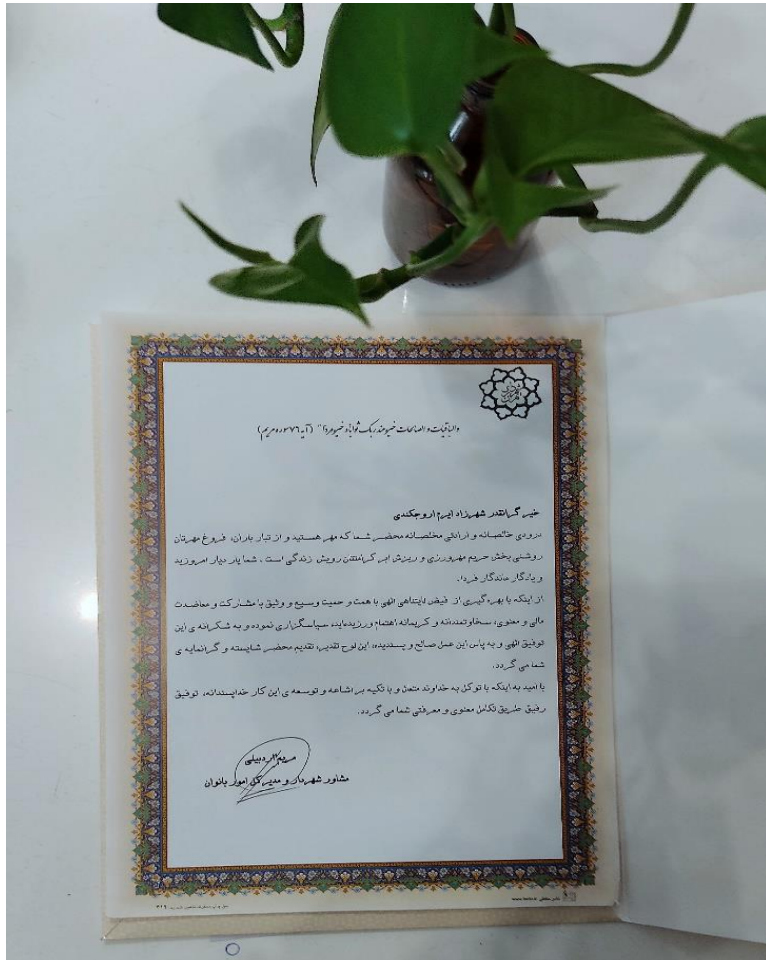 والباقیات والصالحات خیر عند ربک ثوابا و خیر مردا" (آیه ۷۶ سوره مریم)
خیر گرانقدر شهرزاد ایرم اروجکندی
درودی خالصانه و ارادتی مخلصانه محضر شما که مهر هستید و از تبار باران، فروغ مهرتان
روشنی بخش حریم مهرورزی و ریزش ابر کرامتتان رویش زندگی است . شما یار دیار امروزید
و یادگار ماندگار فردا.
از اینکه با بهره گیری از فیض لایتناهی الهی با همت و حمیت وسیع و وثیق با مشارکت و معاضدت
مالی و معنوی، سخاوتمندانه و کریمانه اهتمام ورزیده‌اید، سپاسگزاری نموده و به شکرانه ی این
توفیق الهی و به پاس این عمل صالح و پسندیده، این لوح تقدیر، تقدیم محضر شایسته و گرانمایه ی
شما می گردد.
با امید به اینکه با توکل به خداوند متعال و با تکیه بر اشاعه و توسعه ی این کار خداپسندانه، توفیق
رفیق طریق تکامل معنوی و معرفتی شما می گردد.
مریم اردبیلی
مشاور شهردار و مدیر کل امور بانوان